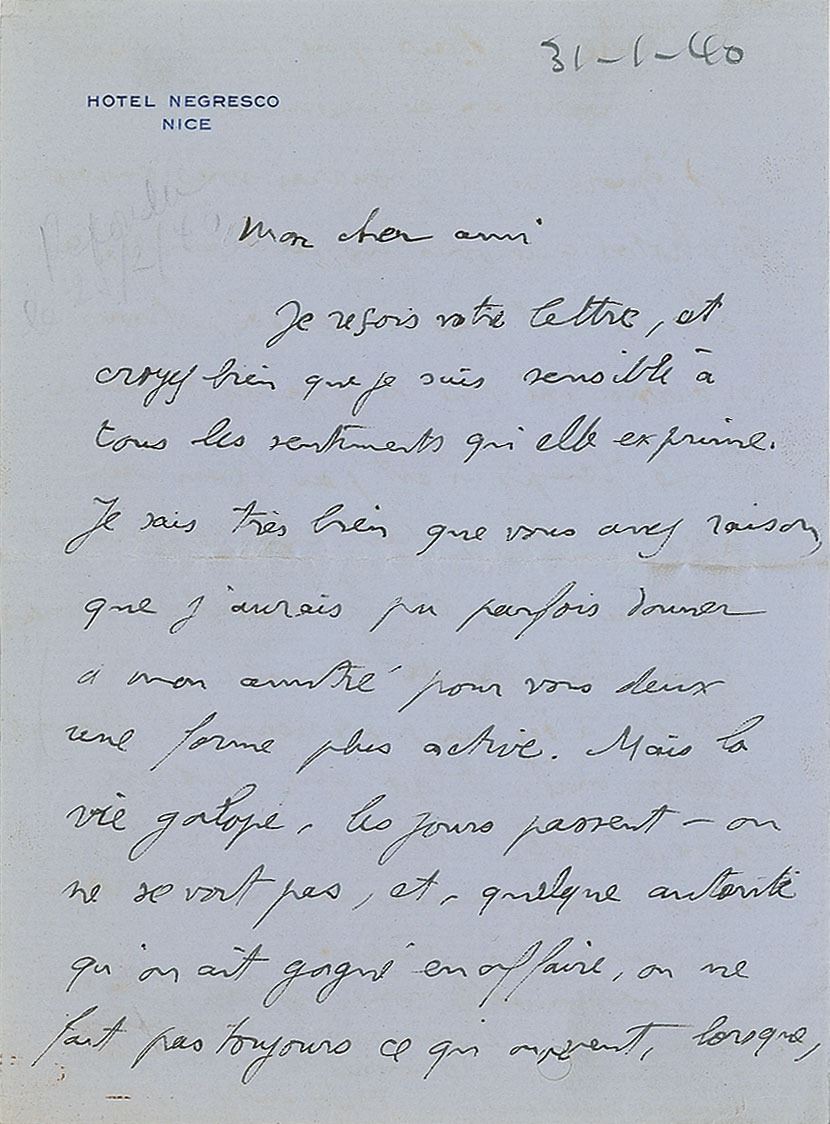 31-1-40
HOTEL NEGRESCO
NICE
Mon cher ami
Je reçois votre lettre, et
croyez bien que je suis sensible à
tous les sentiments qu'elle exprime.
Je sais très bien que vous avez raison,
que j'aurais pu parfois donner
à mon amitié pour vous deux
une forme plus active. Mais la
vie galope, les jours passent – on
ne se voit pas, et, quelque autorité
qu'on ait gagné en affaire, on ne
fait pas toujours ce qu'on veut, lorsque,